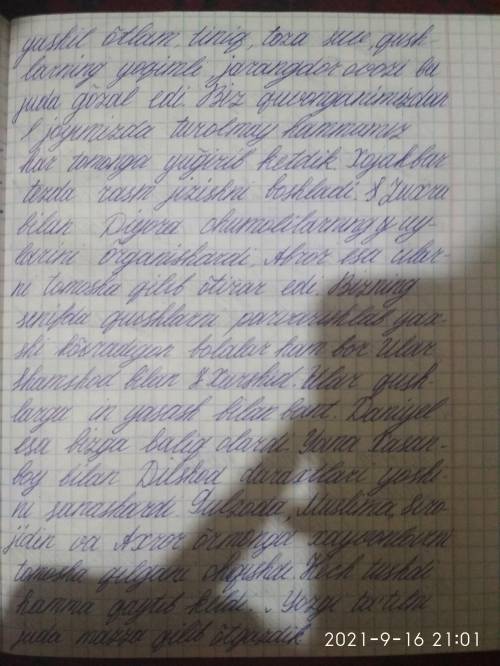 yashil ŏtlam, tiniq, toza suv, qush-
larning yoqimli jarangdor ovozi bu
juda gŏzal edi. Biz quvonganimizdan
joyimizda turolmay hammamiz
har tomonga yugirib ketdik. Xojiakbar
tezda rasm jizishni boshladi. Zuxra
bilan Diyora chumolilarning uy-
larini ŏrganishardi, Abror esa ular-
ni tomosha qilib ŏtirar edi. Bizning
sinfda qushlarni parvarishlab yax-
shi kŏradigon bolalar ham bor. Ular
Shamshod bilan Xurshid. Ular qush-
larga in yasash bilan band. Daniyel
esa bizga baliq olardi. Yana Xasan-
boy bilan Dilshod daraxtlari yoshi-
ni sanashardi. Gulzoda, Muslima, Siro-
jidin va Axror ŏrmonga xayvonlarni
tomosha qilgani chiqishdi. Kech tushdi
hamma qaytib keldi. Yozgi ta'tilni
juda mazza qilib ŏtqazdik
2021-9-16 21:01